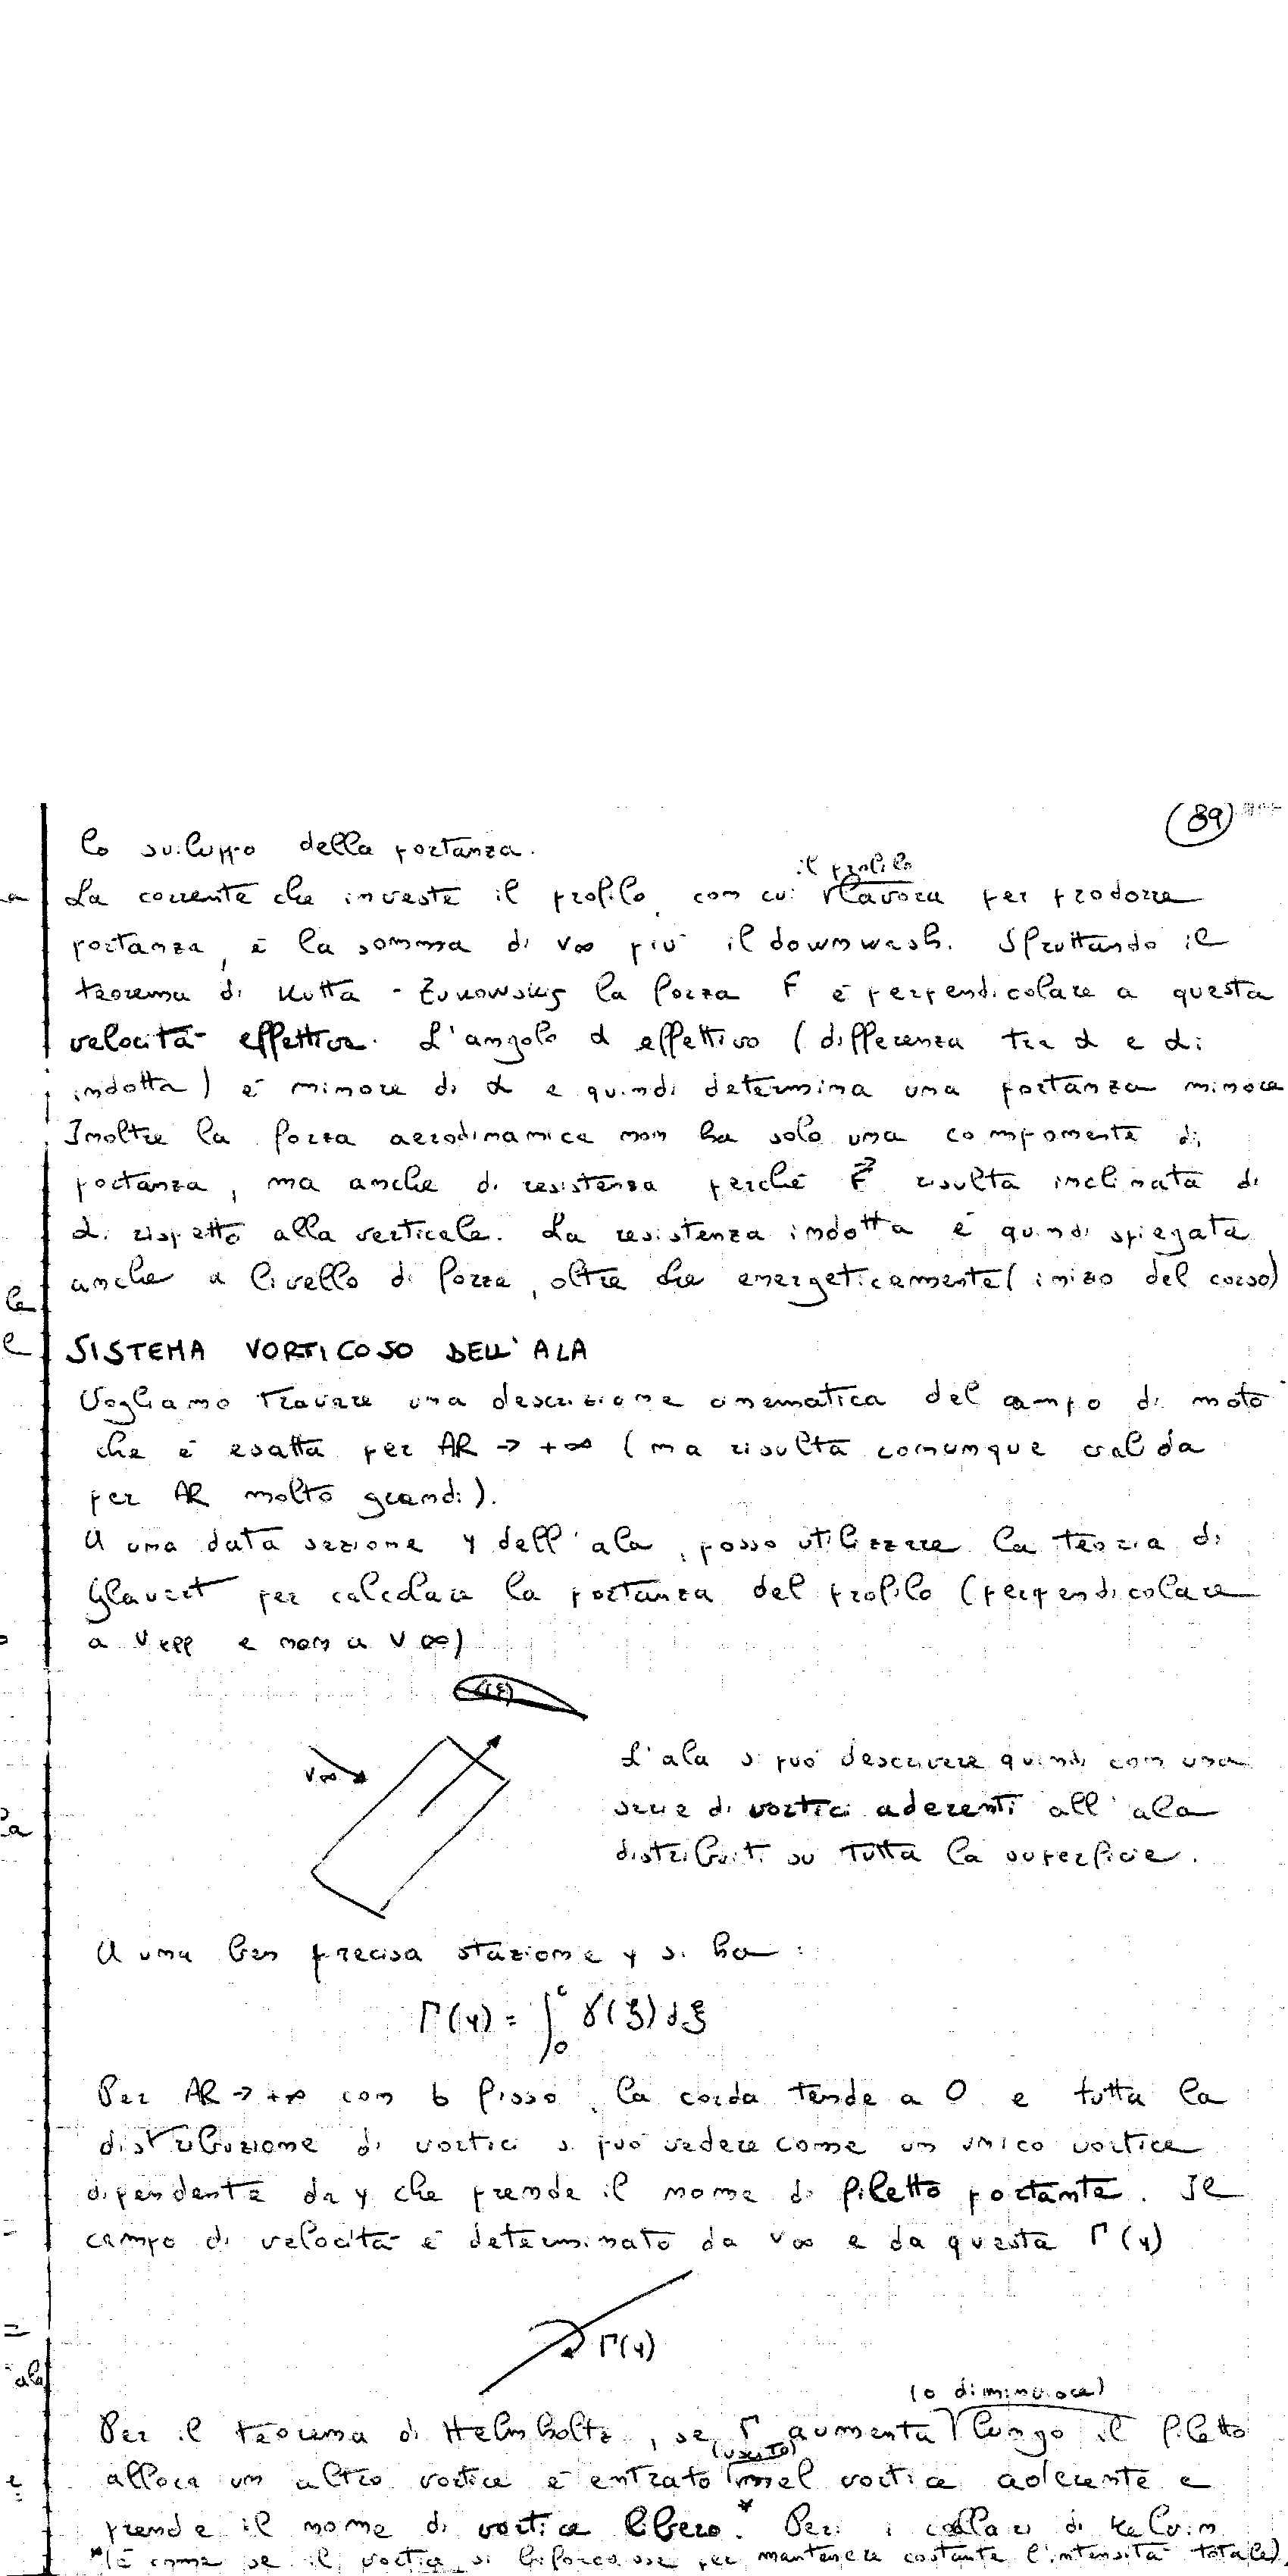 (89)
lo sviluppo della portanza.
il profilo
La corrente che investe il profilo, con cui lavora per produrre
portanza, è la somma di v∞ più il downwash. Sfruttando il
teorema di Kutta - Zukowsky la forza F è perpendicolare a questa
velocità effettiva. L'angolo α effettivo (differenza tra α e αi
indotta) è minore di α e quindi determina una portanza minore
Inoltre la forza aerodinamica non ha solo una componente di
portanza, ma anche di resistenza perché F risulta inclinata di
αi rispetto alla verticale. La resistenza indotta è quindi spiegata
anche a livello di forze, oltre che energeticamente (inizio del corso)
SISTEMA VORTICOSO DELL'ALA
Vogliamo trovare una descrizione cinematica del campo di moto
che è esatta per AR → +∞ (ma risulta comunque valida
per AR molto grandi).
A una data sezione y dell'ala, posso utilizzare la teoria di
Glauert per calcolare la portanza del profilo (perpendicolare
a Veff e non a V∞)
V∞
L'ala si può descrivere quindi con una
serie di vortici aderenti all'ala
distribuiti su tutta la superficie.
A una ben precisa stazione y si ha:
Γ(y) = ∫₀ᶜ γ(ξ) dξ
Per AR → +∞ con b fisso, la corda tende a 0 e tutta la
distribuzione di vortici si può vedere come un unico vortice
dipendente da y che prende il nome di filetto portante. Il
campo di velocità è determinato da v∞ e da questa Γ(y)
Γ(y)
(o diminuisce)
Per il teorema di Helmholtz, se Γ aumenta lungo il filetto
(uscito)
allora un altro vortice è entrato nel vortice aderente e
prende il nome di vortice libero.* Per i collari di Kelvin
*(è come se il vortice si biforcasse per mantenere costante l'intensità totale)
le
e
a
ala